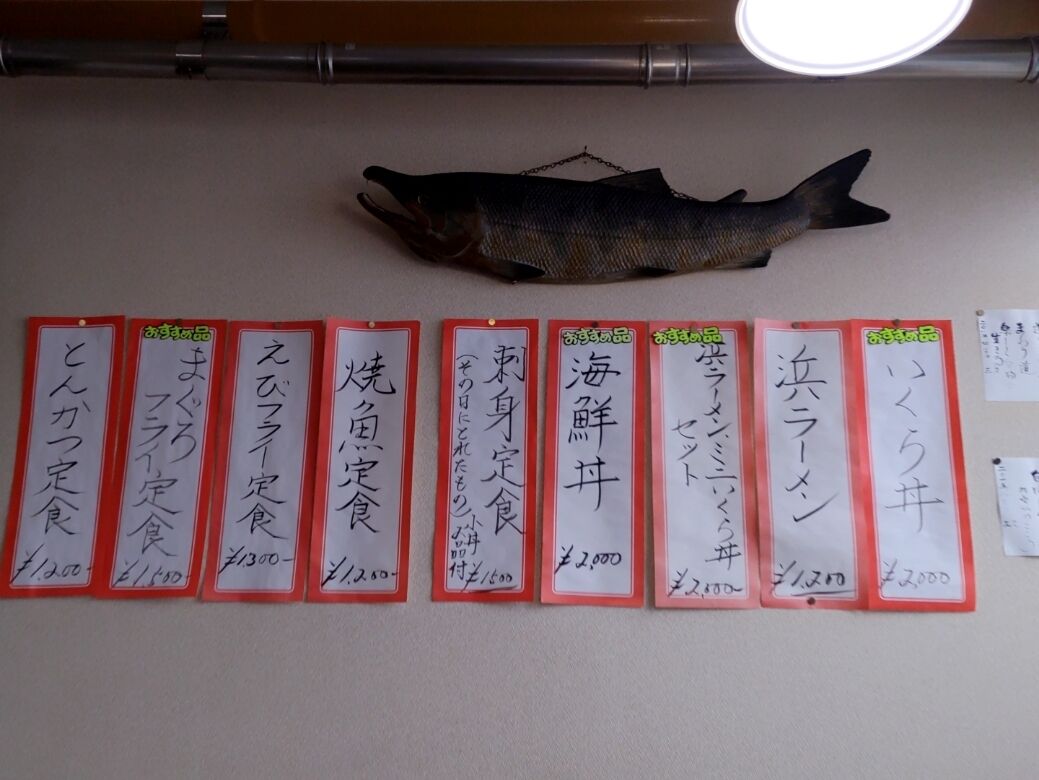 とんかつ定食
¥1,200-
おすすめ品
まぐろ
フライ定食
¥1,500-
えびフライ定食
¥1300-
焼魚定食
¥1,200-
刺身定食
(その日にとれたもの)
小丼
¥1500
おすすめ品
海鮮丼
¥2,000
おすすめ品
浜ラーメン、ミニいくら丼
セット
¥2,000-
浜ラーメン
¥1,200
おすすめ品
いくら丼
¥2,000